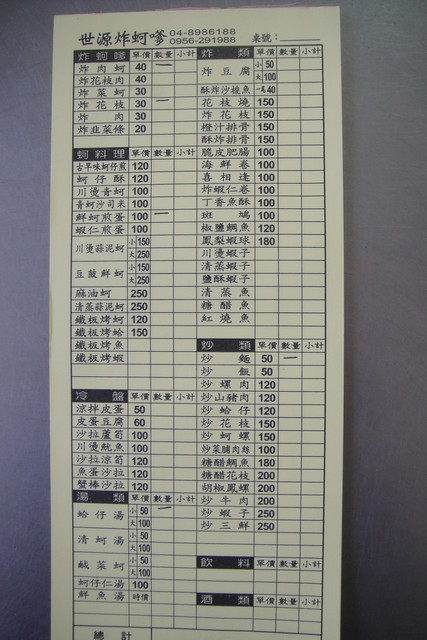 世源炸蚵嗲 04-8986188
0956-291988 桌號：
炸蚵嗲 單價 數量 小計
炸肉蚵 40 一
炸花枝肉 40
炸菜蚵 30
炸花枝 30 一
炸肉 30
炸韭菜條 20
蚵料理 單價 數量 小計
古早味蚵仔煎 120
蚵仔酥 120
川燙青蚵 100
青蚵沙司米 100
鮮蚵煎蛋 100 一
蝦仁煎蛋 100
川燙蒜泥蚵 小150
大250
豆鼓鮮蚵 小150
大250
麻油蚵 250
清蒸蒜泥蚵 250
鐵板烤蚵 120
鐵板烤蛤 150
鐵板烤魚
鐵板烤蝦
冷盤 單價 數量 小計
涼拌皮蛋 50
皮蛋豆腐 60
沙拉蘆筍 100
川燙魷魚 100
沙拉涼筍 120
魚蛋沙拉 120
蟹棒沙拉 120
湯類 單價 數量 小計
蛤仔湯 小50 一
大100
清蚵湯 小50
大100
鹹菜蚵 小50
大100
蚵仔仁湯 100
鮮魚湯 時價
總計
炸類 單價 數量 小計
炸豆腐 小50
大100
酥炸沙梭魚 一尾40
花枝燒 150
炸花枝 150
橙汁排骨 150
酥炸排骨 150
脆皮肥腸 100
海鮮卷 100
喜相逢 100
炸蝦仁卷 100
丁香魚酥 100
斑鳩 100
椒鹽鯛魚 120
鳳梨蝦球 180
川燙蝦子
清蒸蝦子
鹽酥蝦子
清蒸魚
糖醋魚
紅燒魚
炒類 單價 數量 小計
炒麵 50 一
炒飯 50
炒螺肉 120
炒山豬肉 120
炒蛤仔 120
炒花枝 150
炒蚵螺 150
炒菜脯肉絲 100
糖醋鯛魚 180
糖醋花枝 200
胡椒鳳螺 200
炒牛肉 200
炒蝦子 250
炒三鮮 250
飲料 單價 數量 小計
酒類 單價 數量 小計